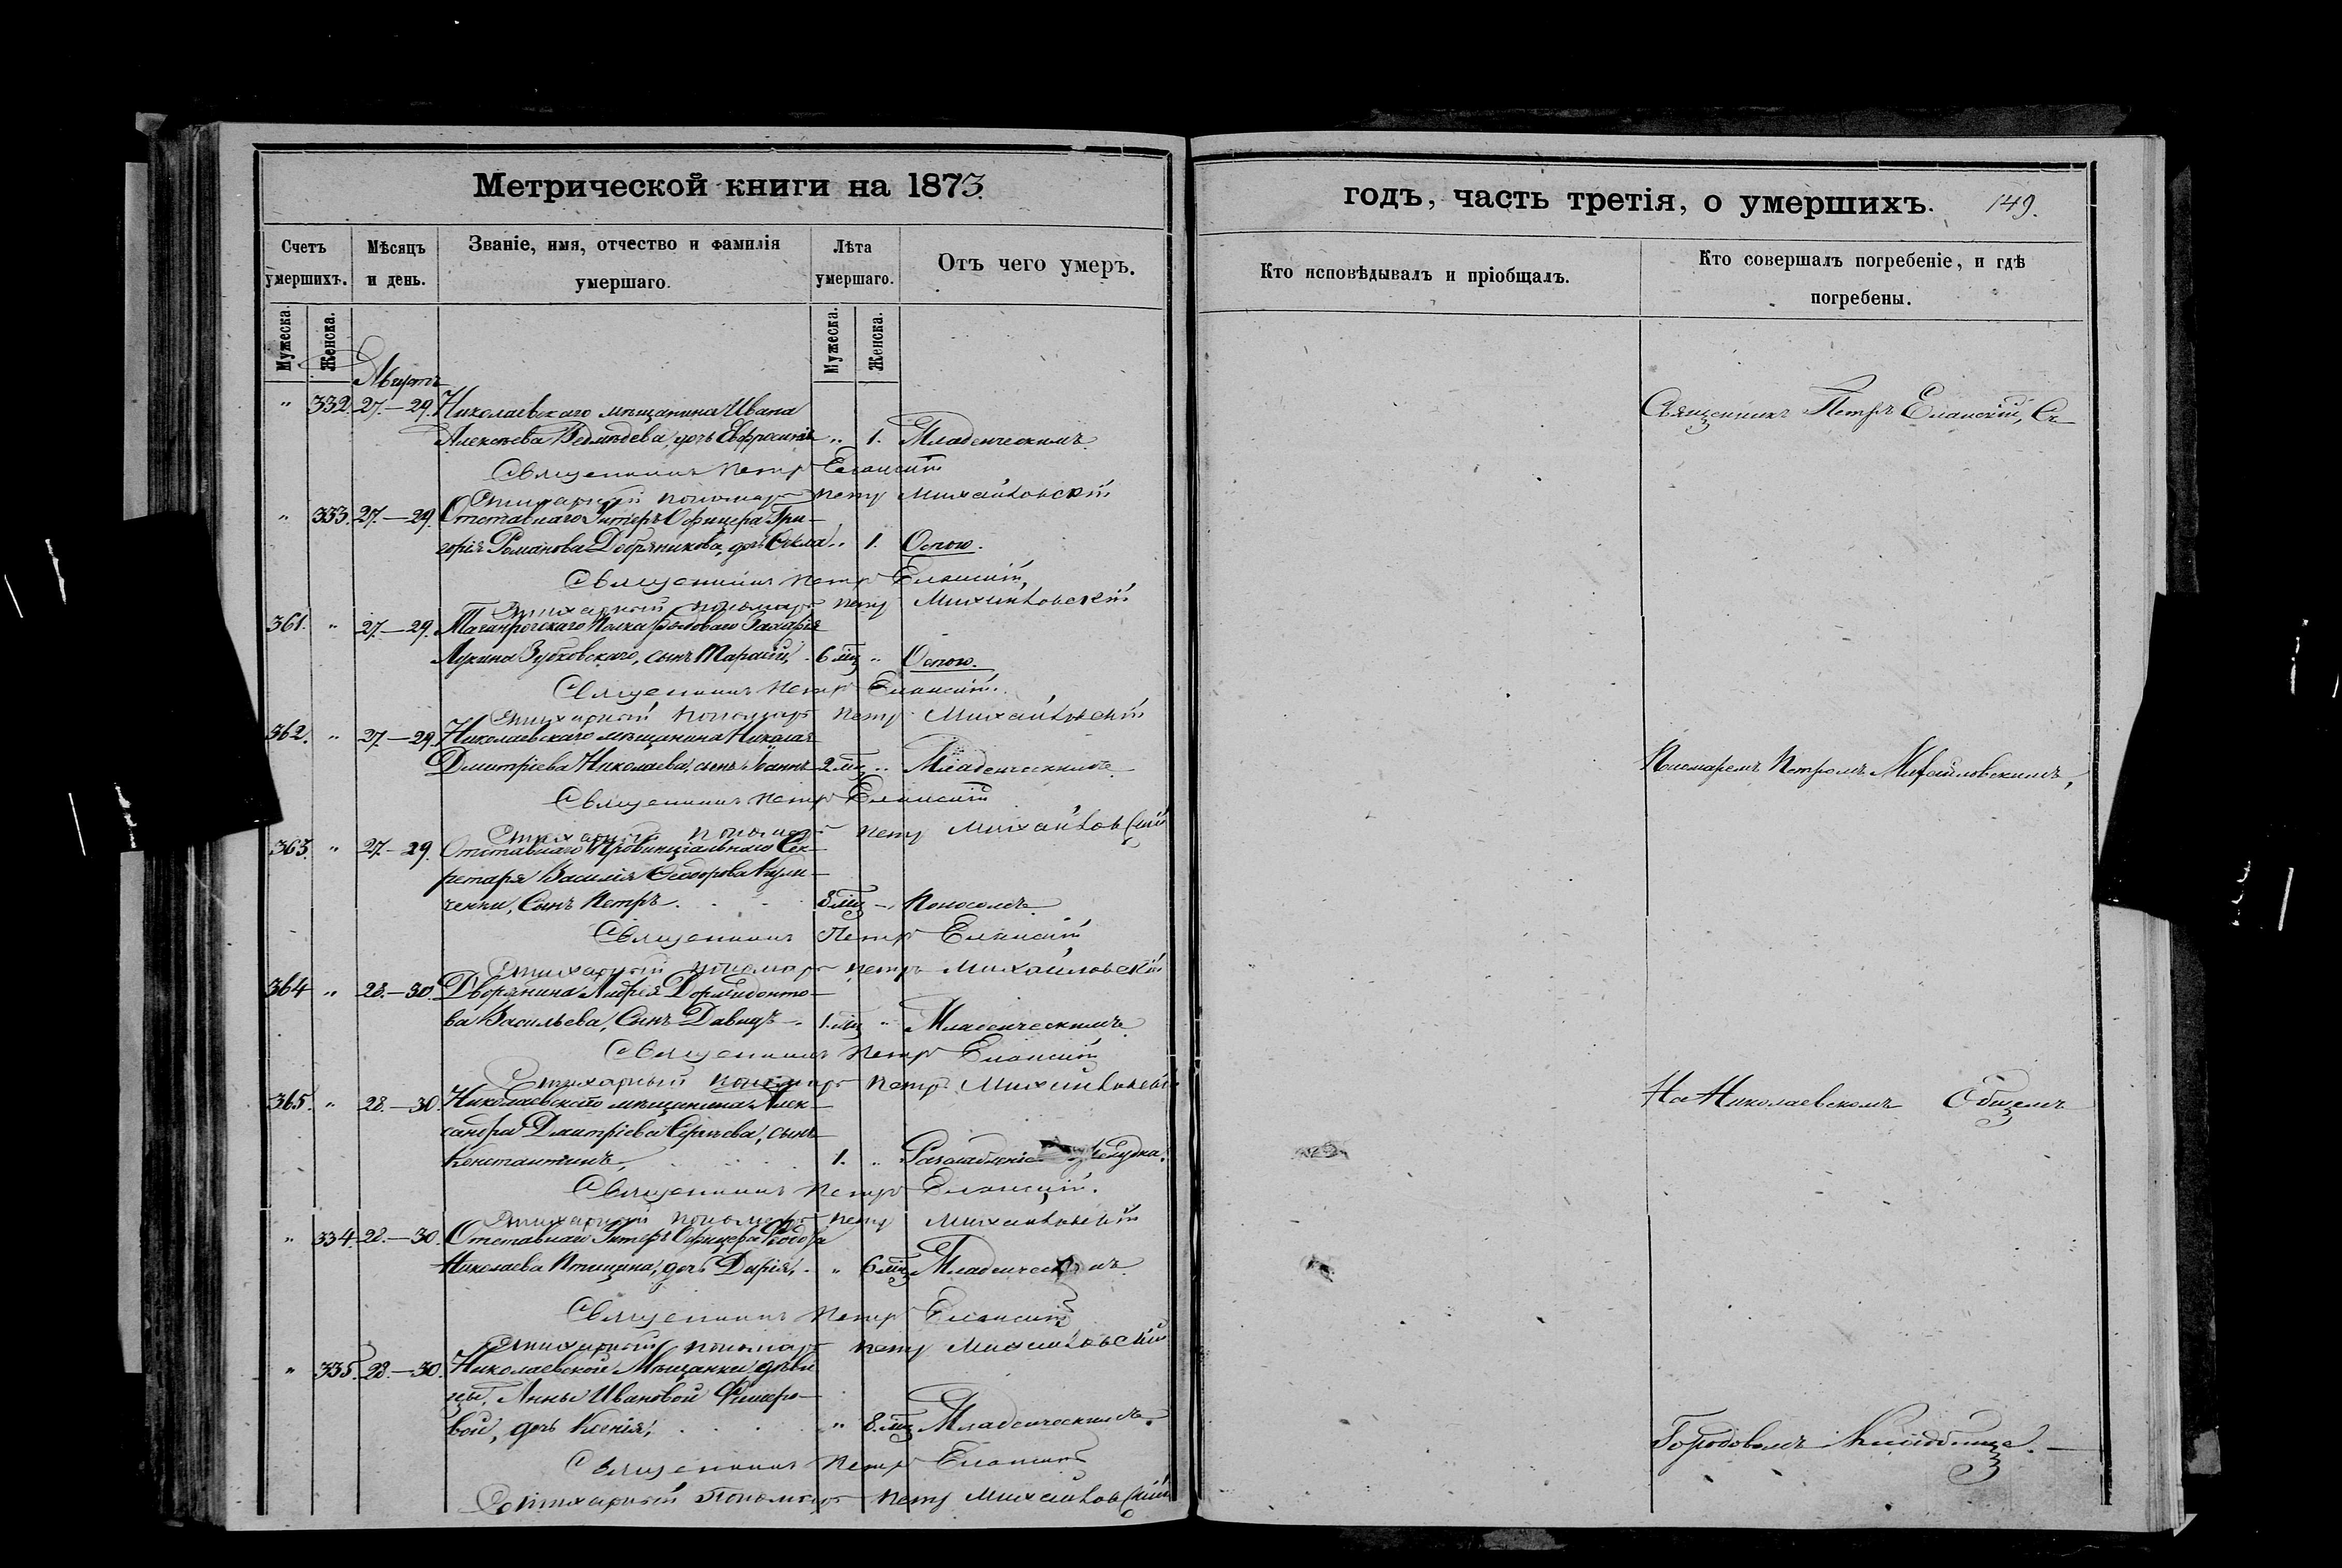 Метрической книги на 1873.
Счетъ умершихъ.
Мѣсяцъ и день.
Званіе, имя, отчество и фамилія умершаго.
Лѣта умершаго.
Отъ чего умеръ.
Мужеска.
Женска.
Мужеска.
Женска.
" 332. 27.–29. Николаевскаго мѣщанина Ивана
Алексѣева Ведмѣдева, дочь Евфросинія " 1. Младенческимъ.
Священникъ Петръ Еланскій
Стихарный пономарь Петръ Михайловскій
" 333. 27.–29. Отставнаго Унтеръ Офицера Гри-
горія Романова Добряникова, дочь Ѳекла " 1. Оспою.
Священникъ Петръ Еланскій
Стихарный пономарь Петръ Михайловскій
361. " 27.–29. Таганрогскаго Полка рядоваго Захарія
Лукина Зубковскаго, сынъ Тарасій, 6 мц " Оспою.
Священникъ Петръ Еланскій.
Стихарный пономарь Петръ Михайловскій
362. " 27.–29. Николаевскаго мѣщанина Николая
Димитріева Николаева, сынъ Іоаннъ 2 мц " Младенческимъ.
Священникъ Петръ Еланскій
Стихарный пономарь Петръ Михайловскій
363. " 27.–29. Отставнаго Провинціальнаго Сек-
ретаря Василія Ѳеодорова Кули-
ченки, Сынъ Петръ. 8 мц " Поносомъ.
Священникъ Петръ Еланскій
Стихарный пономарь Петръ Михайловскій
364 " 28.–30. Дворянина Андрея Дормидонто-
ва Васильева, Сынъ Давидъ 1 мц " Младенческимъ.
Священникъ Петръ Еланскій
Стихарный пономарь Петръ Михайловскій
365. " 28.–30. Николаевскаго мѣщанина Алек-
сандра Димитріева Сергѣева, сынъ
Константинъ, 1. " желудка.
Священникъ Петръ Еланскій.
Стихарный пономарь Петръ Михайловскій
" 334. 28.–30. Отставнаго Унтеръ Офицера Ѳеодора
Николаева Птицина, дочь Дарія, " 6 мц Младенческимъ.
Священникъ Петръ Еланскій
Стихарный пономарь Петръ Михайловскій
" 335. 28.–30. Николаевской Мѣщанки дѣви-
цы, Анны Ивановой
вой, дочь Ксенія, " 8 мц Младенческимъ.
Священникъ Петръ Еланскій
Стихарный Пономарь Петръ Михайловскій
годъ, часть третія, о умершихъ. 149.
Кто исповѣдывалъ и пріобщалъ.
Кто совершалъ погребеніе, и гдѣ погребены.
Священникъ Петръ Еланскій, Съ
Пономаремъ Петромъ Михайловскимъ,
На Николаевскомъ Общемъ
Городовомъ Кладбище.